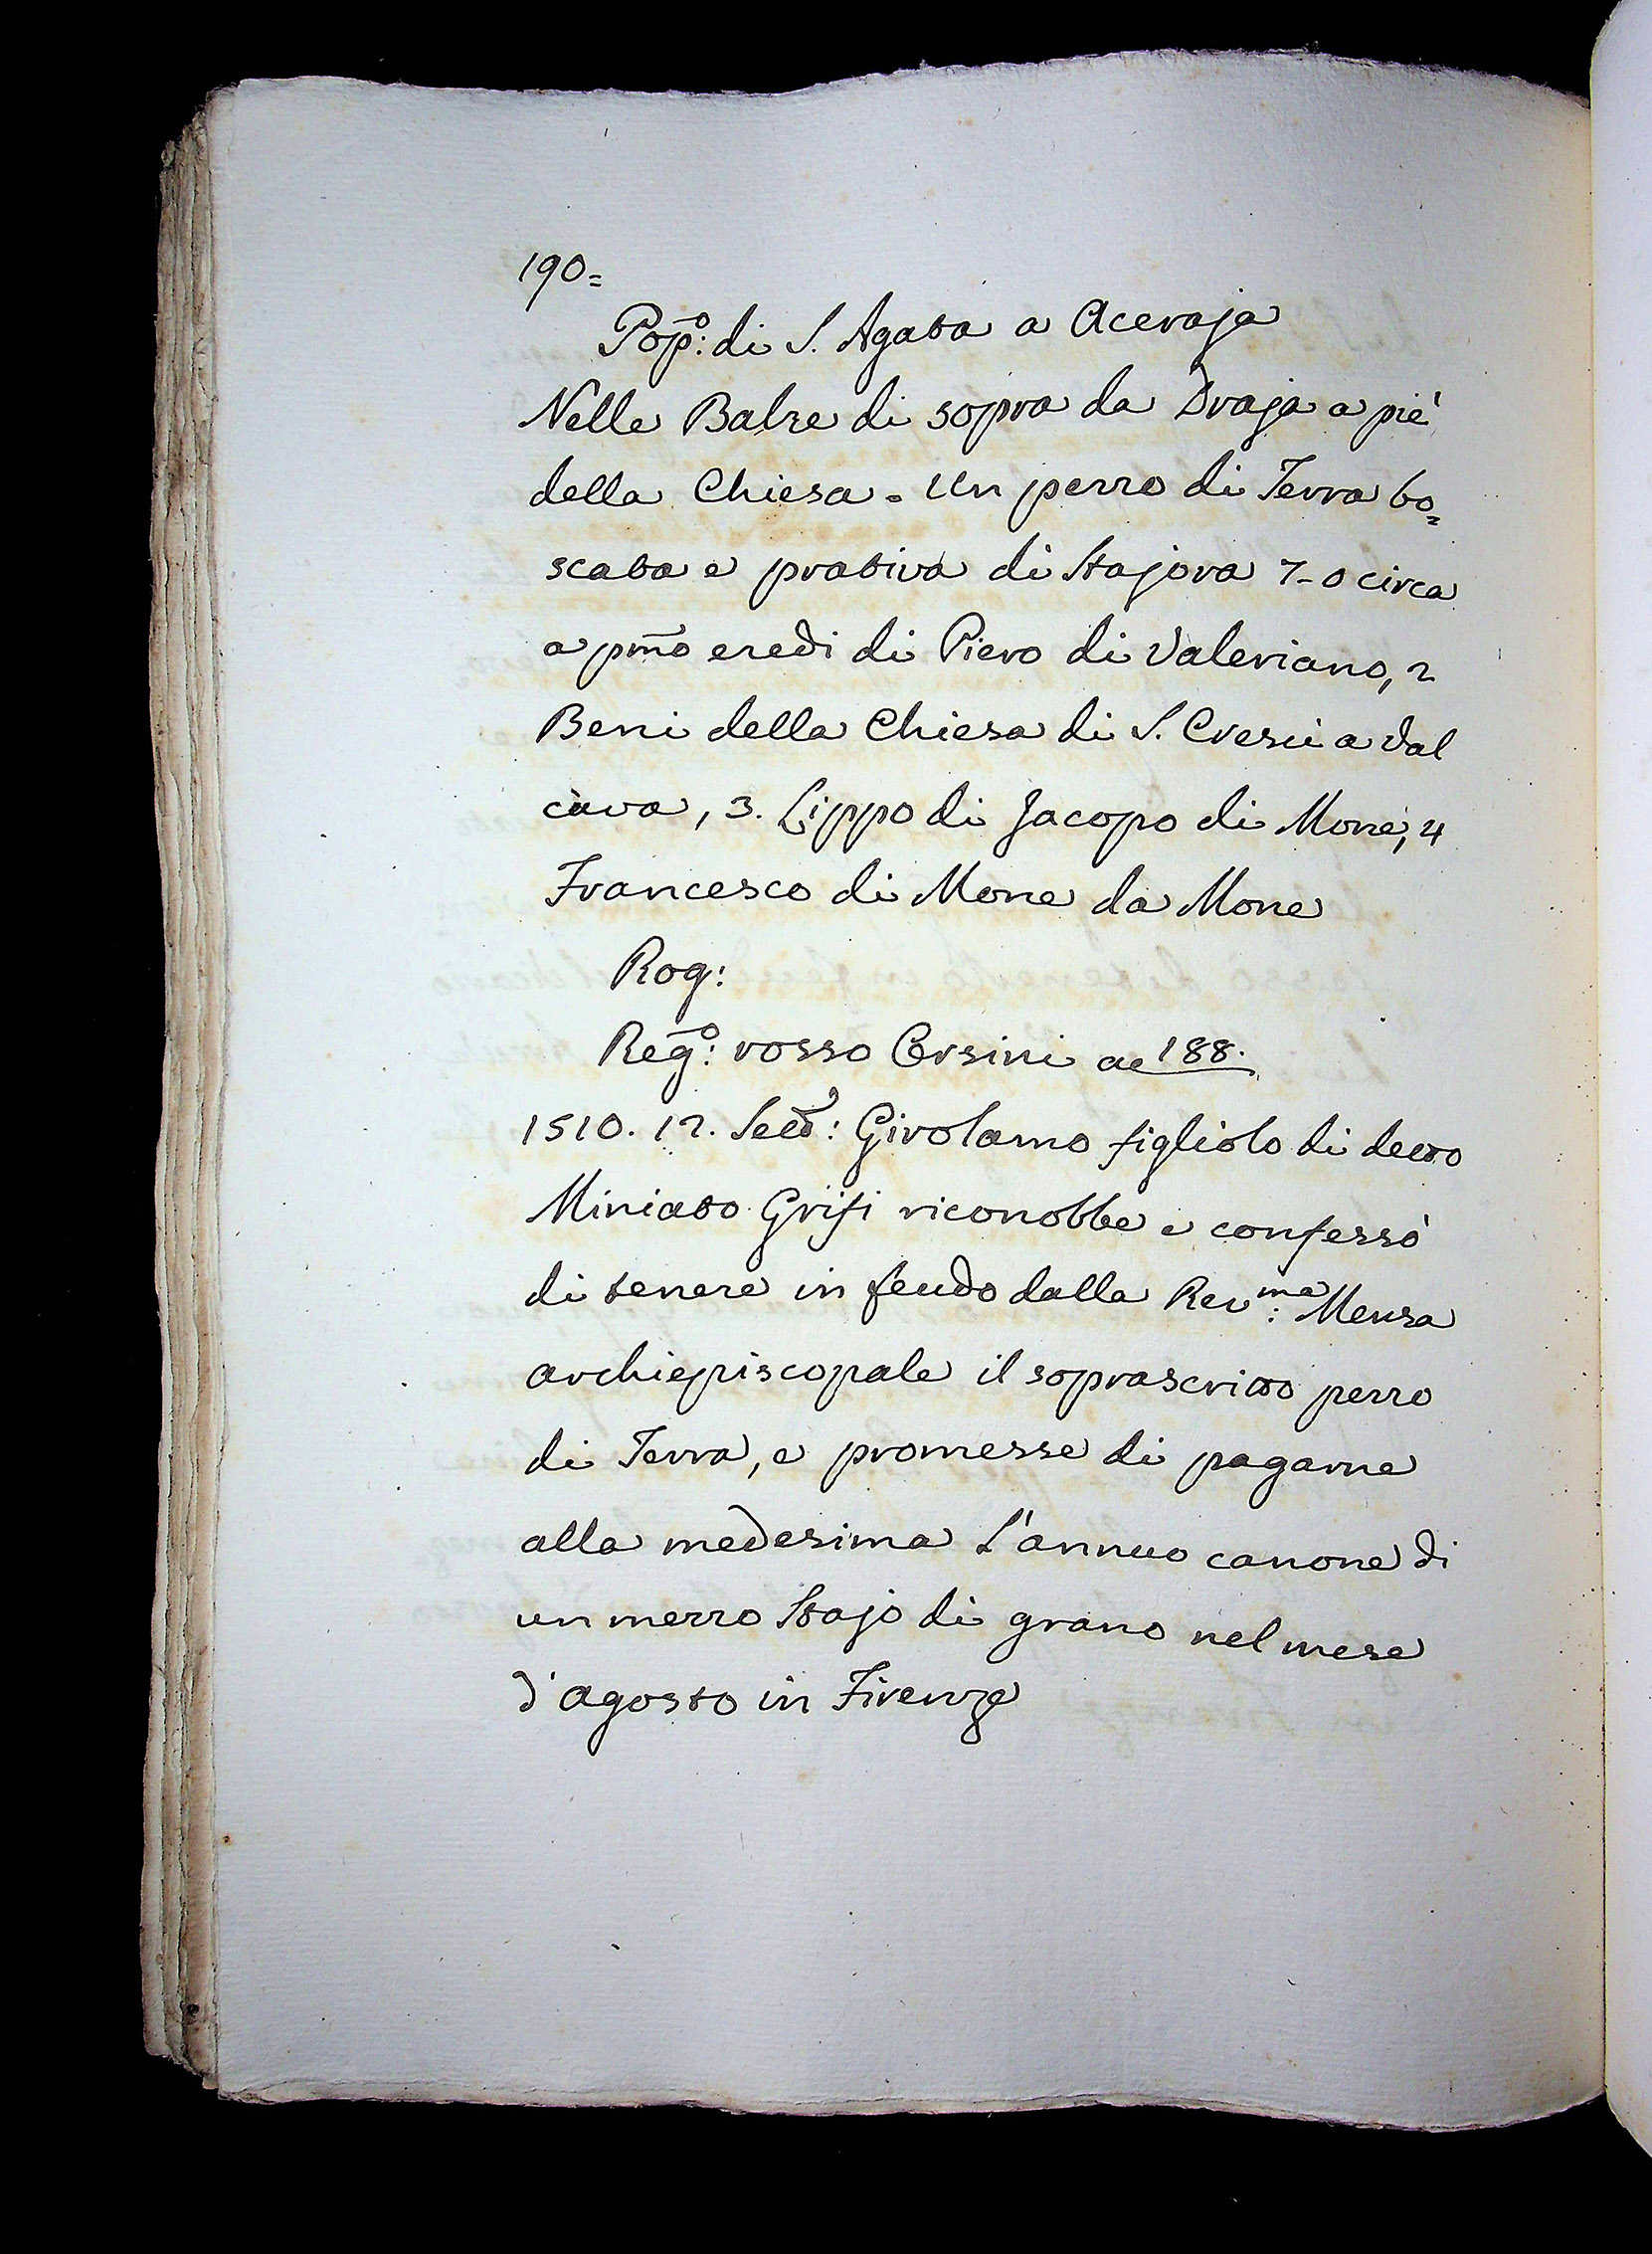 190=
Pop̄o: di S. Agata a Aceraja
Nelle Balze di sopra da Draja a piè
della Chiesa = Un pezzo di Terra bo=
scata e prativa di Stajora 7-0 circa
a pm̄o eredi di Piero di Valeriano, 2
Beni della Chiesa di S. Cresci a Val
cava, 3. Lippo di Jacopo di Mone, 4
Francesco di Mone da Mone
Rog:
Reḡo: rosso Orsini ac 188.
1510. 12. Sett: Girolamo figliolo di detto
Miniato Grifi riconobbe e confessò
di tenere in feudo dalla Revma: Mensa
archiepiscopale il soprascritto pezzo
di Terra, e promesse di pagarne
alla medesima l'annuo canone di
un mezzo Stajo di grano nel mese
d'agosto in Firenze